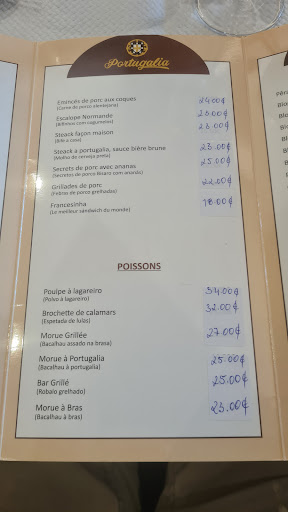 Portugalia
Emincés de porc aux coques 24.00€
(Carne de porco alentejana)
Escalope Normande 25.00€
(Bifinhos com cogumelos)
Steack façon maison 23.00€
(Bife a casa)
Steack a portugalia, sauce bière brune 23.00€
(Molho de cerveja preta)
Secrets de porc avec ananas 25.00€
(Secretos de porco Ibíaro com ananás)
Grillades de porc 22.00€
(Febras de porco grelhadas)
Francesinha 18.00€
(Le meilleur sandwich du monde)
POISSONS
Poulpe à lagareiro 34.00€
(Polvo à lagareiro)
Brochette de calamars 32.00€
(Espetada de lulas)
Morue Grillée 27.00€
(Bacalhau assado na brasa)
Morue à Portugalia 25.00€
(Bacalhau à portugalia)
Bar Grillé 25.00€
(Robalo grelhado)
Morue à Bras 23.00€
(Bacalhau à bras)